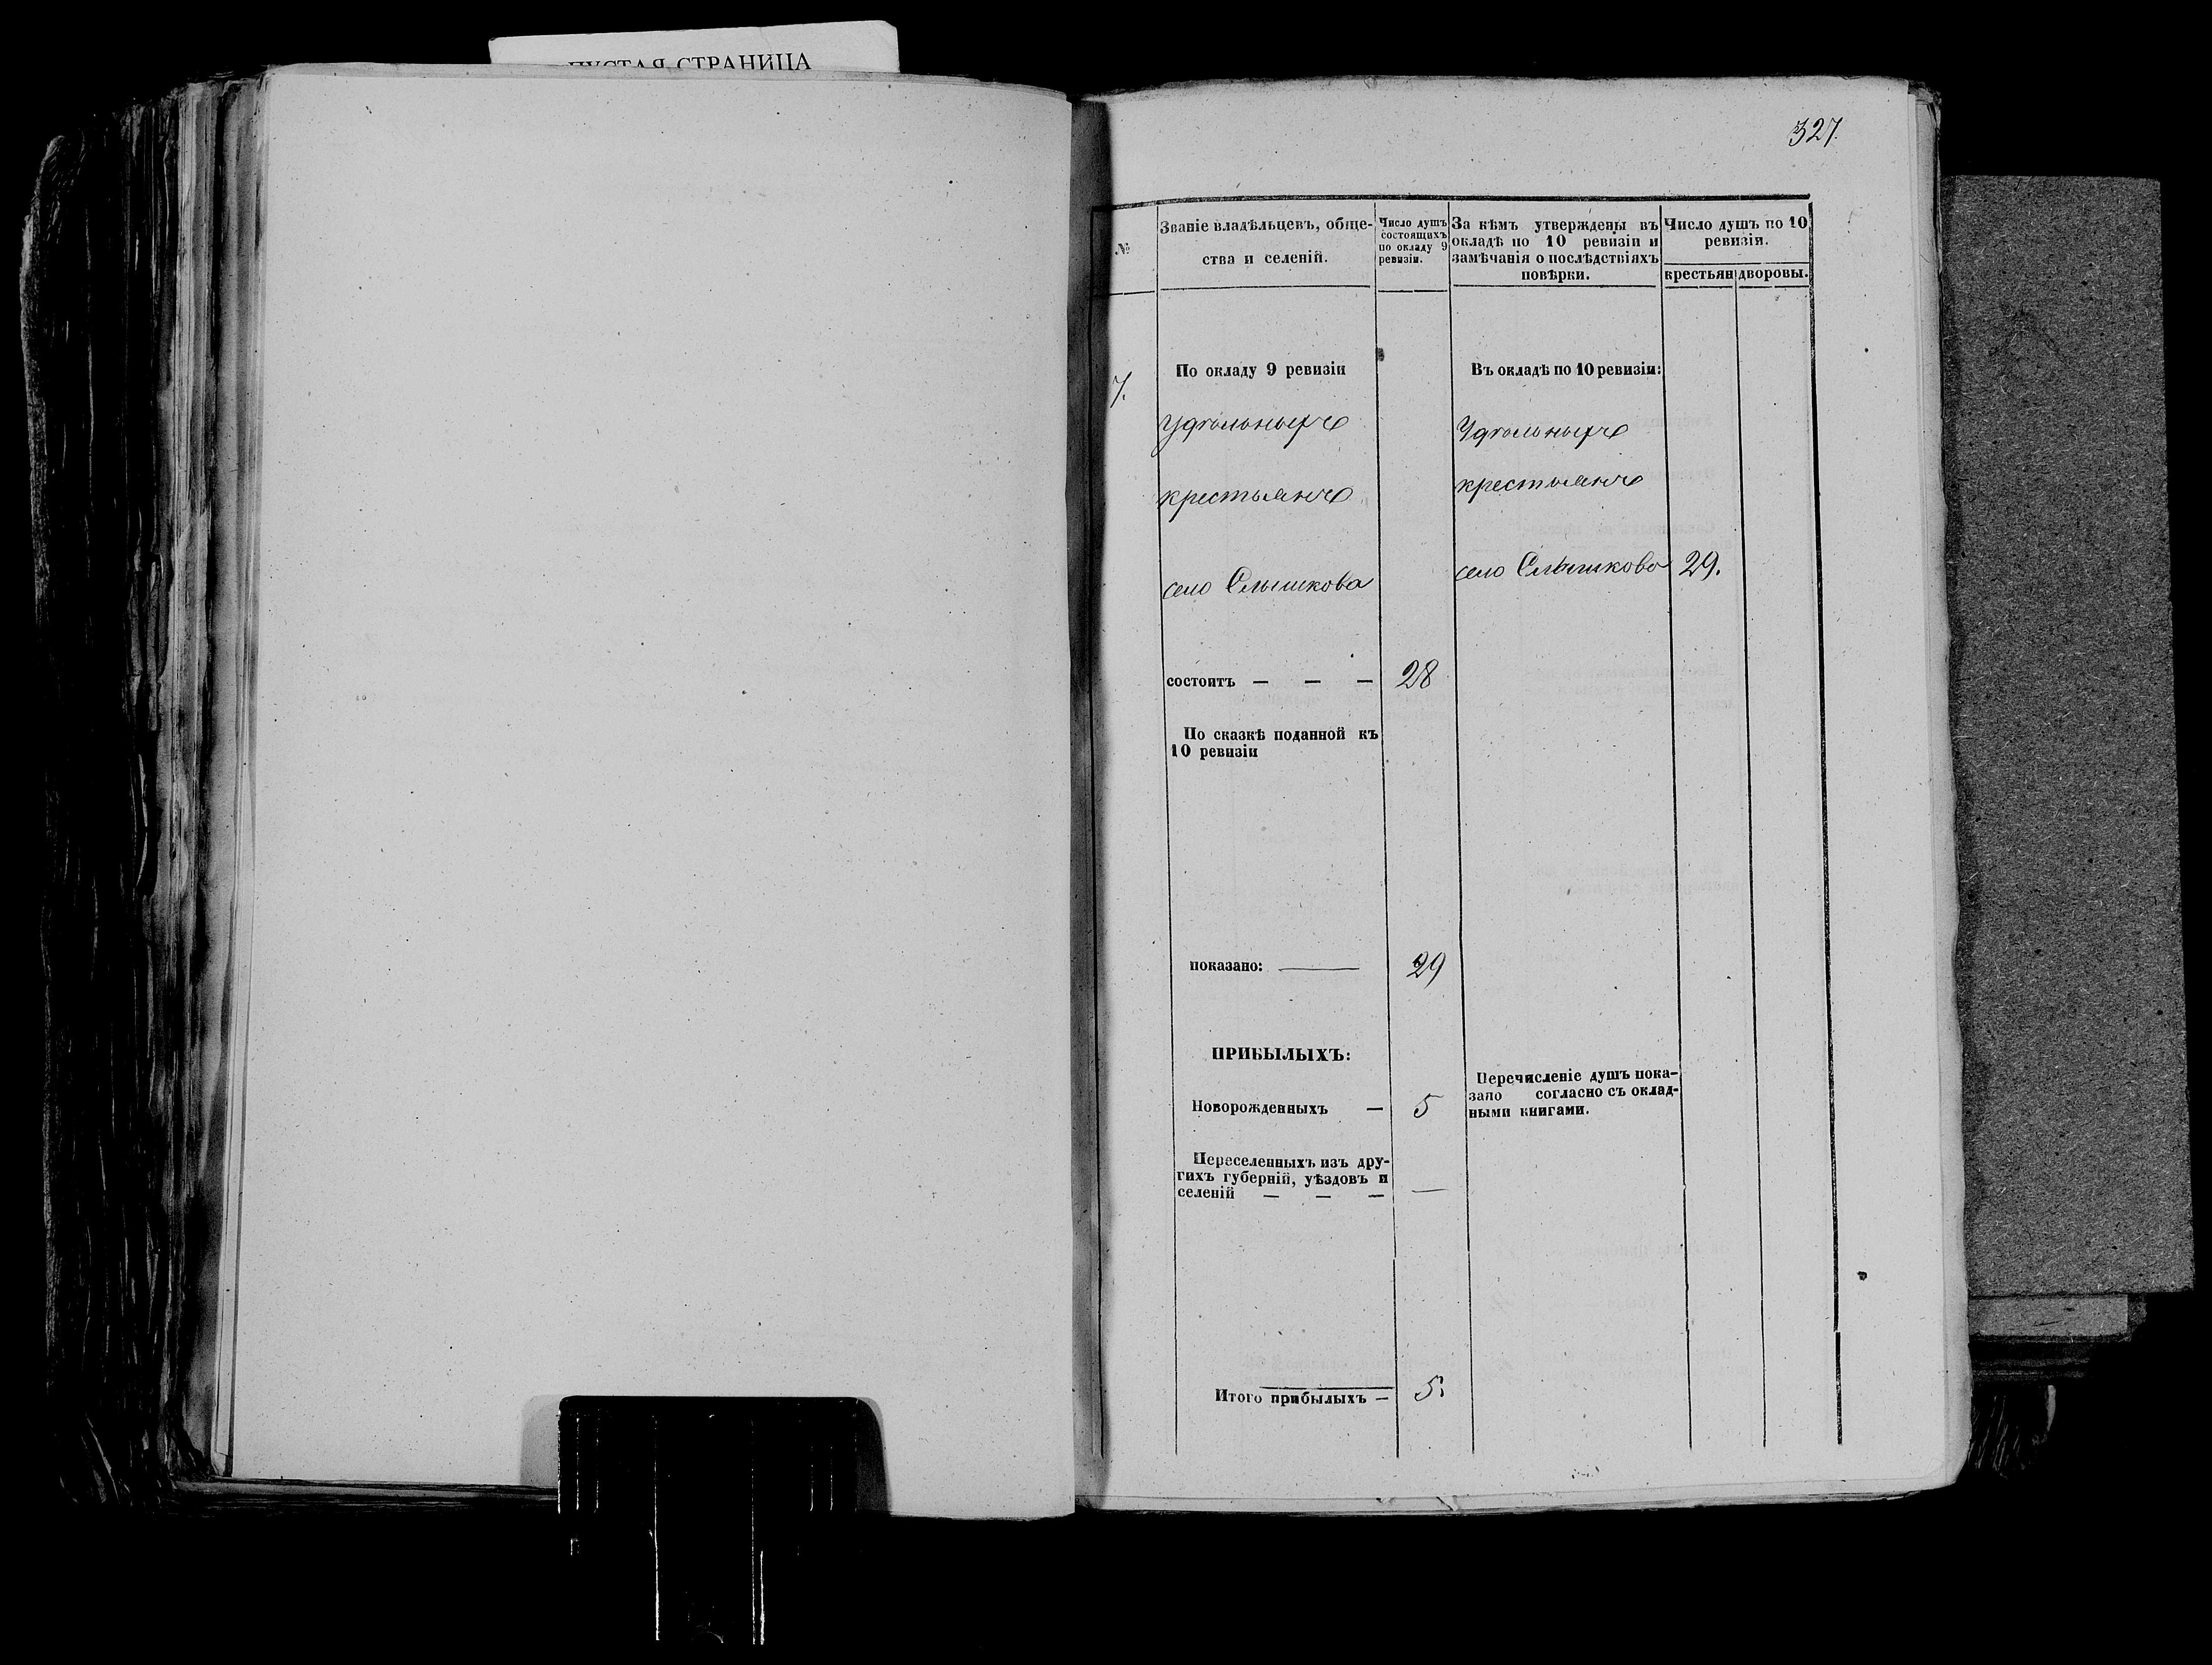 ПУСТАЯ СТРАНИЦА
327.
№
Званіе владѣльцевъ, обще-
ства и селеній.
Число душъ
состоящихъ
по окладу 9
ревизіи.
За кѣмъ утверждены въ
окладѣ по 10 ревизіи и
замѣчанія о послѣдствіяхъ
повѣрки.
Число душъ по 10
ревизіи.
крестьян
дворовы.
7.
По окладу 9 ревизіи
Удѣльныхъ
крестьянъ
село Слышкова
состоитъ — — —
28
По сказкѣ поданной къ
10 ревизіи
показано: ———
29
ПРИБЫЛЫХЪ:
Новорожденныхъ —
5
Переселенныхъ изъ дру-
гихъ губерній, уѣздовъ и
селеній — — —
—
Итого прибылыхъ —
5.
Въ окладѣ по 10 ревизіи:
Удѣльныхъ
крестьянъ
село Слышково
29.
Перечисленіе душъ пока-
зано согласно съ оклад-
ными книгами.